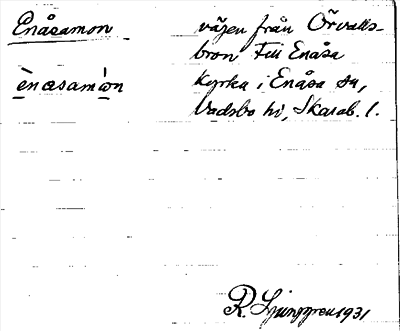 Enåsamon
vägen från Örvalls-
bron till Enåsa
kyrka i Enåsa sn,
Vadsbo hd, Skarab. l.
ènåsamòn
R. Ljunggren 1931